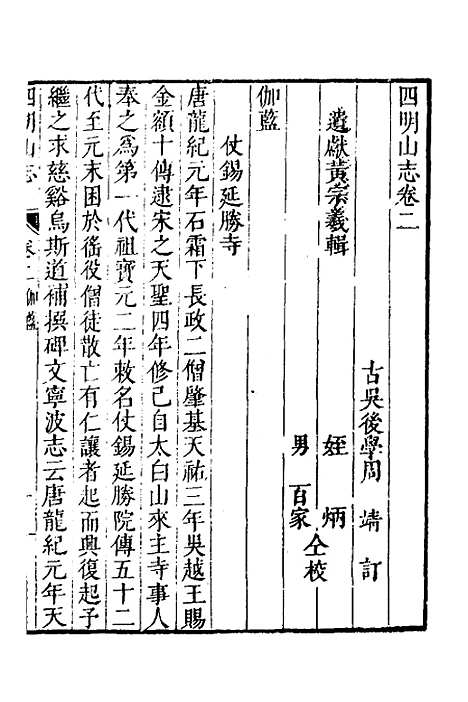 四明山志卷二
古吳後學周靖訂
遺獻黃宗羲輯
姪炳
男百家
仝校
伽藍
仗錫延勝寺
唐龍紀元年石霜下長政二僧肇基天祐三年吳越王賜
金額十傳逮宋之天聖四年修己自太白山來主寺事人
奉之為第一代祖寶元二年敕名仗錫延勝院傳五十二
代至元末困於徭役僧徒散亡有仁讓者起而興復起予
繼之求慈谿烏斯道補撰碑文寧波志云唐龍紀元年天
四明山志
卷二伽藍
一